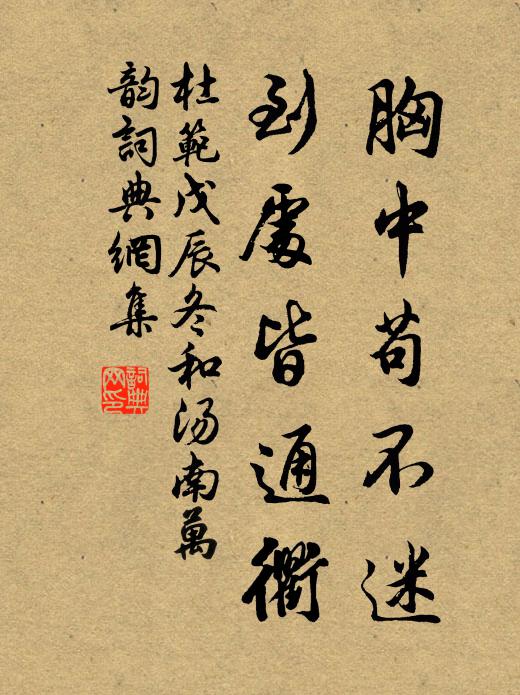 胸中苟不迷
到處皆通衢
杜範戊辰冬和湯南萬
韵詞典網集
詞典網印